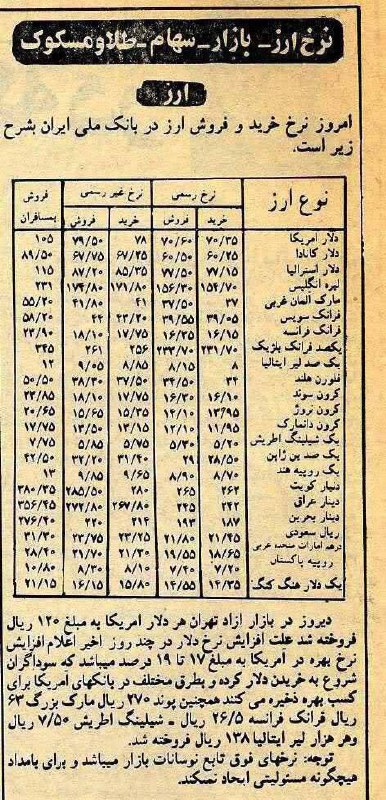 نرخ ارز - بازار - سهام - طلا و مسکوک
ارز
امروز نرخ خرید و فروش ارز در بانک ملی ایران بشرح
زیر است.
نوع ارز نرخ رسمی نرخ غیر رسمی فروش
خرید فروش خرید فروش بمسافران
دلار امریکا ۷۰/۳۵ ۷۰/۶۰ ۷۸ ۷۹/۵۰ ۱۰۵
دلار کانادا ۶۰/۲۵ ۶۰/۵۰ ۶۷/۲۵ ۶۷/۷۵ ۸۹/۵۰
دلار استرالیا ۷۷/۱۵ ۷۷/۵۰ ۸۵/۳۵ ۸۷/۲۰ ۱۱۵
لیره انگلیس ۱۵۴/۷۰ ۱۵۶/۳۰ ۱۷۱/۸۰ ۱۷۴/۸۰ ۲۳۱
مارک آلمان غربی ۳۷ ۳۷/۵۰ ۴۱ ۴۱/۸۰ ۵۵/۲۰
فرانک سویس ۳۹/۰۵ ۳۹/۵۵ ۴۳/۲۰ ۴۴ ۵۸/۲۰
فرانک فرانسه ۱۶/۱۵ ۱۶/۳۵ ۱۷/۷۵ ۱۸/۱۰ ۲۳/۹۰
یکصد فرانک بلژیک ۲۳۱/۷۰ ۲۳۳/۷۰ ۲۵۶ ۲۶۱ ۳۴۵
یک صد لیر ایتالیا ۸ ۸/۱۵ ۸/۸۵ ۹/۰۵ ۱۲
فلورن هلند ۳۴ ۳۴/۵۰ ۳۷/۵۰ ۳۸/۳۰ ۵۰/۵۰
کرون سوئد ۱۶/۱۰ ۱۶/۳۰ ۱۷/۷۵ ۱۸/۱۰ ۲۳/۸۵
کرون نروژ ۱۳/۹۵ ۱۴/۱۰ ۱۵/۳۵ ۱۵/۶۵ ۲۰/۶۵
کرون دانمارک ۱۱/۹۵ ۱۲/۱۰ ۱۳/۱۵ ۱۳/۵۰ ۱۷/۷۵
یک شیلینگ اطریش ۵/۲۰ ۵/۳۰ ۵/۷۵ ۵/۸۵ ۷/۷۵
یک صد ین ژاپن ۲۸/۵۰ ۲۹ ۳۱/۴۰ ۳۲/۲۰ ۴۲/۵۰
یک روپیه هند ۸/۷۰ ۸/۹۰ ۹/۶۵ ۹/۸۵ ۱۳
دینار کویت ۲۶۲ ۲۶۵ ۲۸۰ ۲۸۵/۵۰ ۳۸۰/۳۵
دینار عراق ۲۴۲ ۲۴۵ ۲۶۷/۸۰ ۲۷۲/۸۰ ۳۵۶/۴۵
دینار بحرین ۱۸۷ ۱۹۳ ۲۱۴ ۲۲۰ ۲۷۶/۲۰
ریال سعودی ۲۱/۴۵ ۲۱/۸۰ ۲۳/۲۵ ۲۳/۷۵ ۳۱/۳۰
درهم امارات متحده عربی ۱۸/۶۵ ۱۹/۵۵ ۲۱/۳۰ ۲۱/۷۰ ۲۸/۲۰
روپیه پاکستان ۷/۲۰ ۷/۴۰ ۸/۱۰ ۸/۳۰ ۱۰/۸۰
یک دلار هنگ کنگ ۱۴/۳۵ ۱۴/۵۵ ۱۵/۸۰ ۱۶/۱۵ ۲۱/۱۵
دیروز در بازار آزاد تهران هر دلار امریکا به مبلغ ۱۲۰ ریال
فروخته شد علت افزایش نرخ دلار در چند روز اخیر اعلام افزایش
نرخ بهره در آمریکا به مبلغ ۱۷ تا ۱۹ درصد میباشد که سوداگران
شروع به خریدن دلار کرده و بطرق مختلف در بانکهای آمریکا برای
کسب بهره ذخیره می کنند همچنین پوند ۲۷۰ ریال مارک بزرگ ۶۳
ریال فرانک فرانسه ۲۶/۵ ریال ـ شیلینگ اطریش ۷/۵۰ ریال
وهر هزار لیر ایتالیا ۱۳۸ ریال فروخته شد.
توجه: نرخهای فوق تابع نوسانات بازار میباشد و برای بامداد
هیچگونه مسئولیتی ایجاد نمیکند.